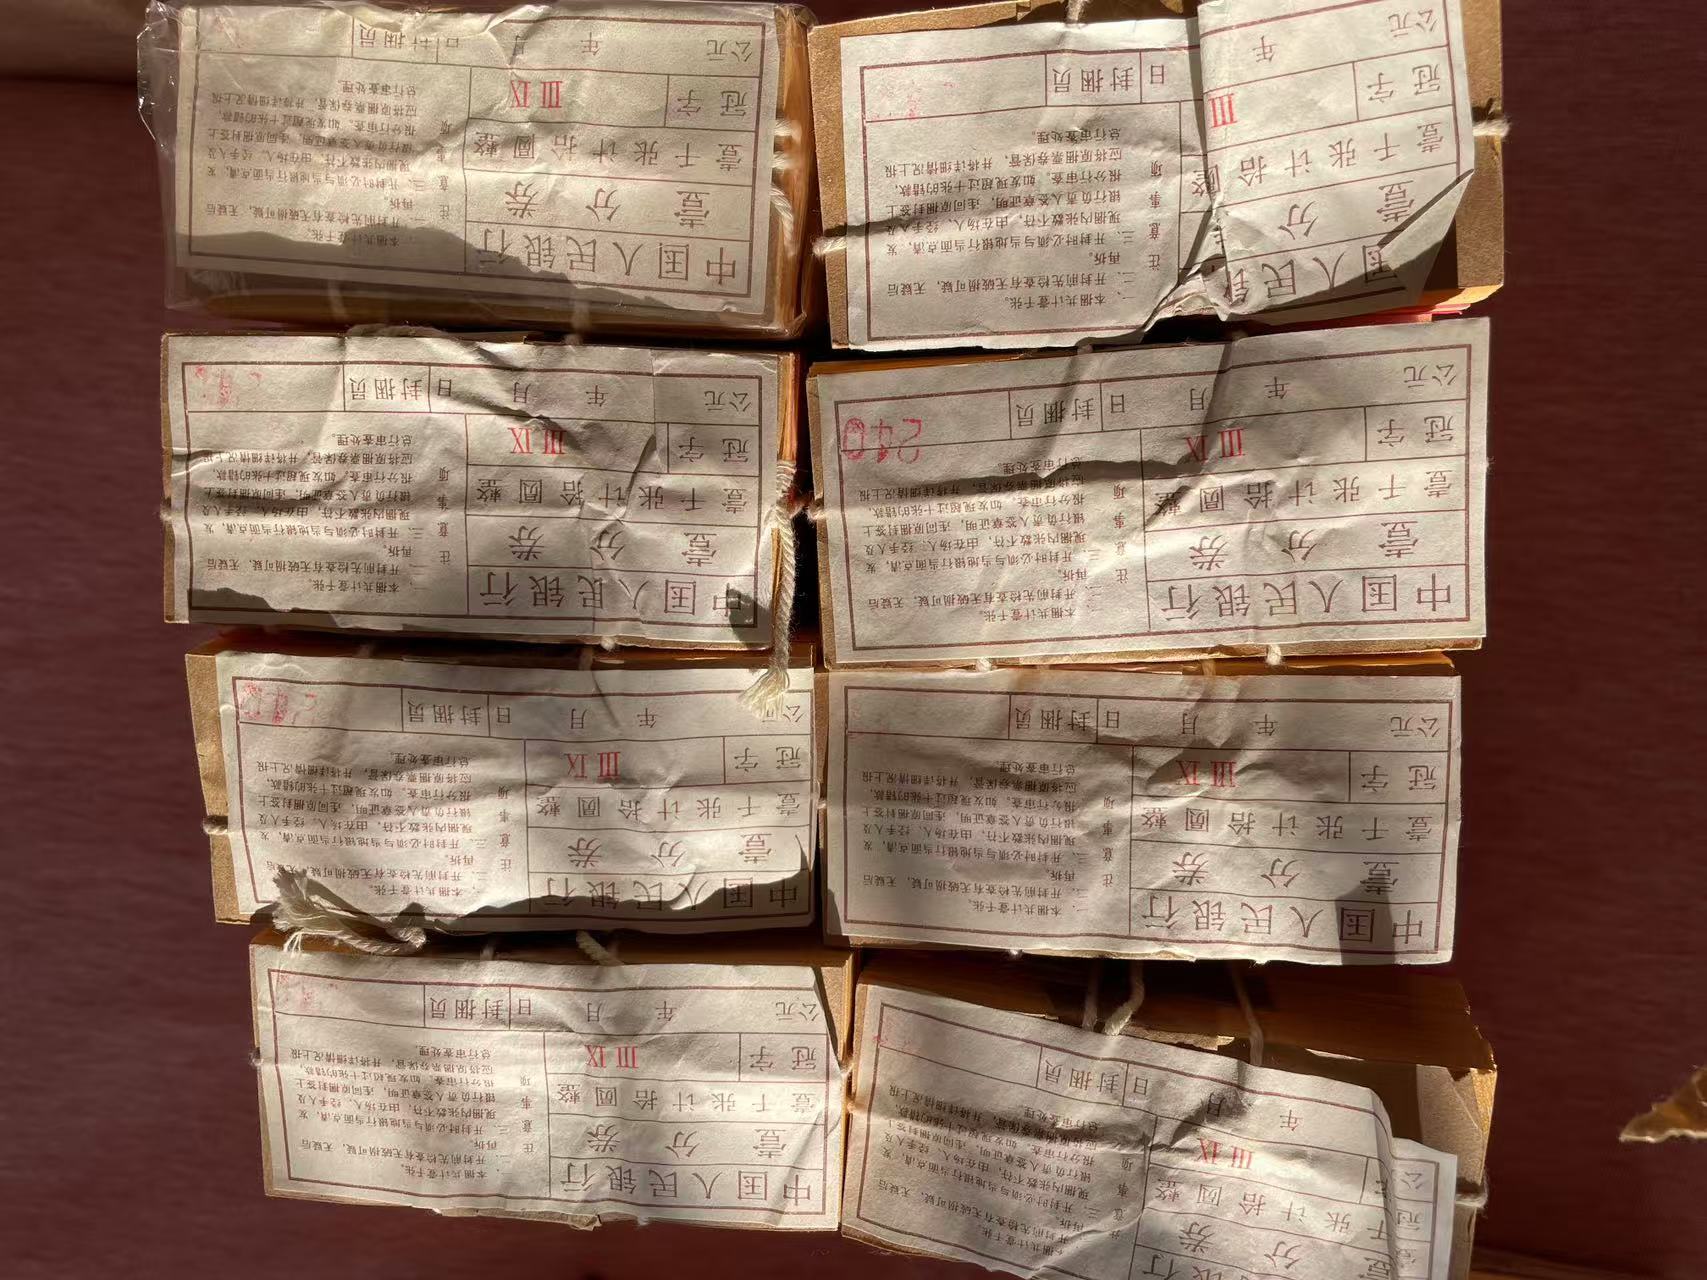 中国人民银行
壹分券
壹千张计拾圆整
冠 III IX
公元 年 月 日 封捆员
注意事项
一、本捆共计壹千张。
二、开封前先检查有无破损可疑,无疑后
再拆。
三、开封时必须与当地银行当面点清,发
现捆内张数不符,由在场人、经手人及
银行负责人签章证明,连同原捆封签上
报分行审查。如发现超过十张的错款,
应将原捆票券保管,并将详细情况上报
总行审查处理。
中国人民银行
壹分券
壹千张计拾圆整
冠字 III IX
公元 年 月 日 封捆员
注意事项
一、本捆共计壹千张。
二、开封前先检查有无破损可疑,无疑后
再拆。
三、开封时必须与当地银行当面点清,发
现捆内张数不符,由在场人、经手人及
银行负责人签章证明,连同原捆封签上
报分行审查。如发现超过十张的错款,
应将原捆票券保管,并将详细情况上报
总行审查处理。
中国人民银行
壹分券
壹千张计拾圆整
冠字 III IX
公元 年 月 日 封捆员
注意事项
一、本捆共计壹千张。
二、开封前先检查有无破损可疑,无疑后
再拆。
三、开封时必须与当地银行当面点清,发
现捆内张数不符,由在场人、经手人及
银行负责人签章证明,连同原捆封签上
报分行审查。如发现超过十张的错款,
应将原捆票券保管,并将详细情况上报
总行审查处理。
中国人民银行
壹分券
壹千张计拾圆整
冠字 III IX
公元 年 月 日 封捆员
注意事项
一、本捆共计壹千张。
二、开封前先检查有无破损可疑,无疑后
再拆。
三、开封时必须与当地银行当面点清,发
现捆内张数不符,由在场人、经手人及
银行负责人签章证明,连同原捆封签上
报分行审查。如发现超过十张的错款,
应将原捆票券保管,并将详细情况上报
总行审查处理。
中国人民银行
壹分券
壹千张计拾圆整
冠字 III IX
公元 年 月 日 封捆员
注意事项
一、本捆共计壹千张。
二、开封前先检查有无破损可疑,无疑后
再拆。
三、开封时必须与当地银行当面点清,发
现捆内张数不符,由在场人、经手人及
银行负责人签章证明,连同原捆封签上
报分行审查。如发现超过十张的错款,
应将原捆票券保管,并将详细情况上报
总行审查处理。
中国人民银行
壹分券
壹千张计拾圆整
冠字 III IX
公元 年 月 日 封捆员
注意事项
一、本捆共计壹千张。
二、开封前先检查有无破损可疑,无疑后
再拆。
三、开封时必须与当地银行当面点清,发
现捆内张数不符,由在场人、经手人及
银行负责人签章证明,连同原捆封签上
报分行审查。如发现超过十张的错款,
应将原捆票券保管,并将详细情况上报
总行审查处理。
国人民银
壹分
壹千张计拾圆整
冠字 III
公元 年 日 封捆员
注意事项
一、本捆共计壹千张。
二、开封前先检查有无破损可疑,无疑后
再拆。
三、开封时必须与当地银行当面点清,发
现捆内张数不符,由在场人、经手人及
银行负责人签章证明,连同原捆封签上
报分行审查。如发现超过十张的错款,
应将原捆票券保管,并将详细情况上报
总行审查处理。
中国人民银行
壹分券
壹千张计拾圆整
冠字 III IX
公元 年 月 日 封捆员
注意事项
一、本捆共计壹千张。
二、开封前先检查有无破损可疑,无疑后
再拆。
三、开封时必须与当地银行当面点清,发
现捆内张数不符,由在场人、经手人及
银行负责人签章证明,连同原捆封签上
报分行审查。如发现超过十张的错款,
应将原捆票券保管,并将详细情况上报
总行审查处理。